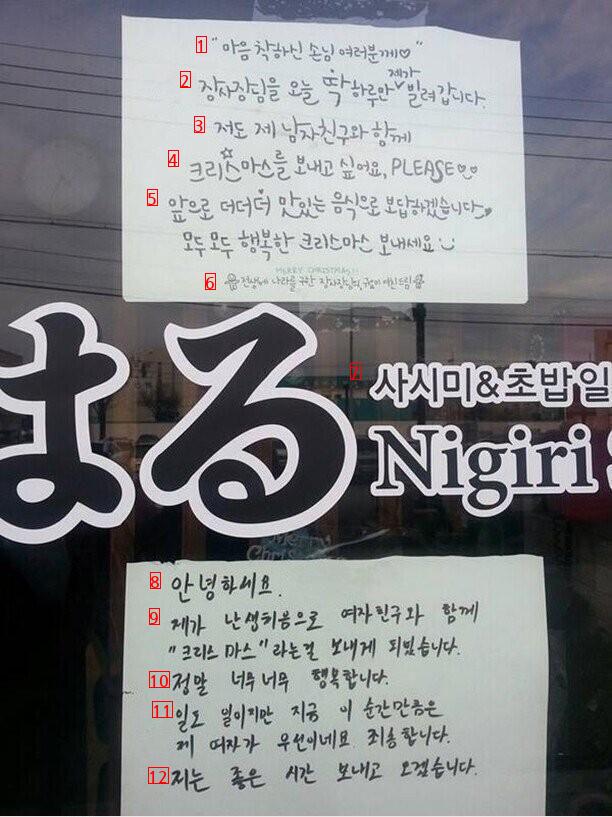 1 "마음 착하신 손님 여러분께♡"
2 장사장님을 오늘 딱 하루만 제가 빌려갑니다.
3 저도 제 남자친구와 함께
4 크리스마스를 보내고 싶어요, PLEASE♡♡
5 앞으로 더더더 맛있는 음식으로 보답하겠습니다♥
모두 모두 행복한 크리스마스 보내세요
MERRY CHRISTMAS!!
6 전생에 나라를 구한 장사장님의 여친드림
はる
7 사시미&초밥일
Nigiri
Merry
Chris
8 안녕하세요.
9 제가 난생처음으로 여자친구와 함께
"크리스마스"라는걸 보내게 되었습니다.
10 정말 너무너무 행복합니다.
11 일도 일이지만 지금 이 순간만큼은
제 여자가 우선이네요 죄송합니다.
12 저는 좋은 시간 보내고 오겠습니다.